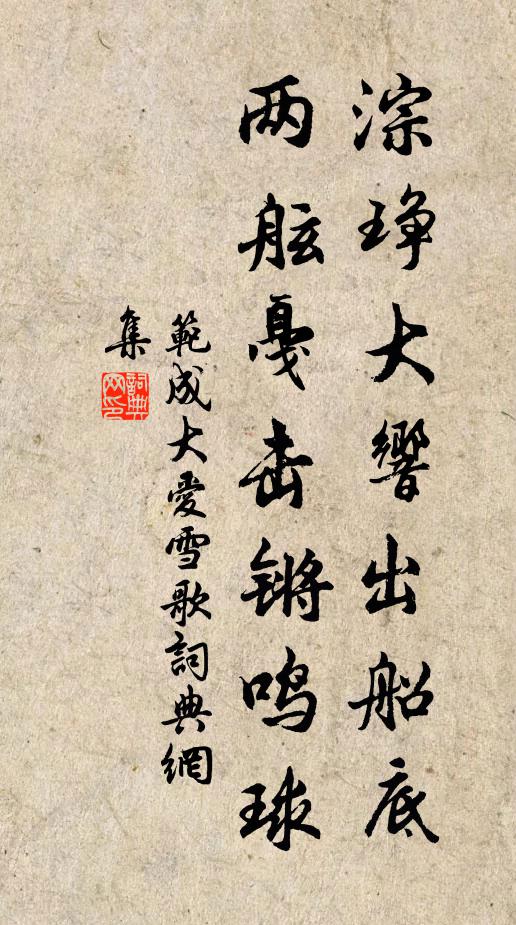 淙琤大響出船底
两舷戛击锵鸣球
範成大愛雪歌詞典網
集
詞典
网印